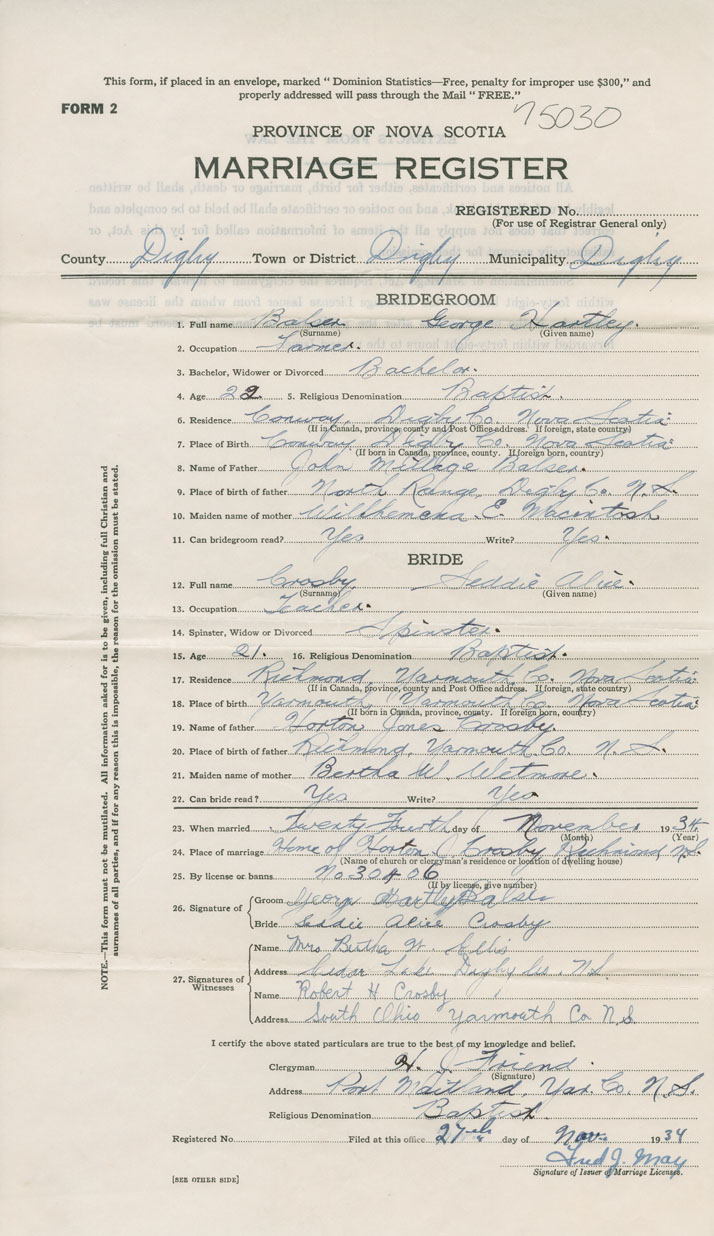 This form, if placed in an envelope, marked " Dominion Statistics—Free, penalty for improper use $300," and
properly addressed will pass through the Mail " FREE."
FORM 2
75030
PROVINCE OF NOVA SCOTIA
MARRIAGE REGISTER
REGISTERED No.
(For use of Registrar General only)
County Digby Town or District Digby Municipality Digby
BRIDEGROOM
1. Full name Balser George Hartley.
(Surname) (Given name)
2. Occupation Farmer.
3. Bachelor, Widower or Divorced Bachelor.
4. Age 22. 5. Religious Denomination Baptist.
6. Residence Conway, Digby Co. Nova Scotia
(If in Canada, province, county and Post Office address. If foreign, state country)
7. Place of Birth Conway Digby Co. Nova Scotia
(If born in Canada, province, county. If foreign born, country)
8. Name of Father John Millage Balser.
9. Place of birth of father North Range, Digby Co. N.S.
10. Maiden name of mother E. Macintosh
11. Can bridegroom read? Yes Write? Yes.
BRIDE
12. Full name Crosby Seddie Alice.
(Surname) (Given name)
13. Occupation Teacher.
14. Spinster, Widow or Divorced Spinster.
15. Age 21. 16. Religious Denomination Baptist.
17. Residence Richmond, Yarmouth Co. Nova Scotia
(If in Canada, province, county and Post Office address. If foreign, state country)
18. Place of birth Yarmouth, Yarmouth Co. Nova Scotia
(If born in Canada, province, county. If foreign born, country)
19. Name of father Horton Jones Crosby.
20. Place of birth of father Richmond, Yarmouth Co. N.S.
21. Maiden name of mother Bertha W Wetmore.
22. Can bride read? Yes Write? Yes
23. When married Twenty Fourth day of November 1934
(Month) (Year)
24. Place of marriage Home of Horton J Crosby Richmond N.S.
(Name of church or clergyman's residence or location of dwelling house)
25. By license or banns No. 30406
(If by license, give number)
26. Signature of Groom George Hartley Balser
Bride Seddie Alice Crosby
27. Signatures of Witnesses Name Mrs Bertha W. Ellis
Address Cedar Lake Digby Co. N.S.
Name Robert H Crosby
Address South Ohio Yarmouth Co N.S.
I certify the above stated particulars are true to the best of my knowledge and belief.
Clergyman H. J Friend.
(Signature)
Address Port Maitland, Yar. Co. N.S.
Religious Denomination Baptist.
Registered No Filed at this office 27th day of Nov. 1934
Fred J. May
Signature of Issuer of Marriage Licenses.
[SEE OTHER SIDE]
NOTE.—This form must not be mutilated. All information asked for is to be given, including full Christian and
surnames of all parties, and if for any reason this is impossible, the reason for the omission must be stated.